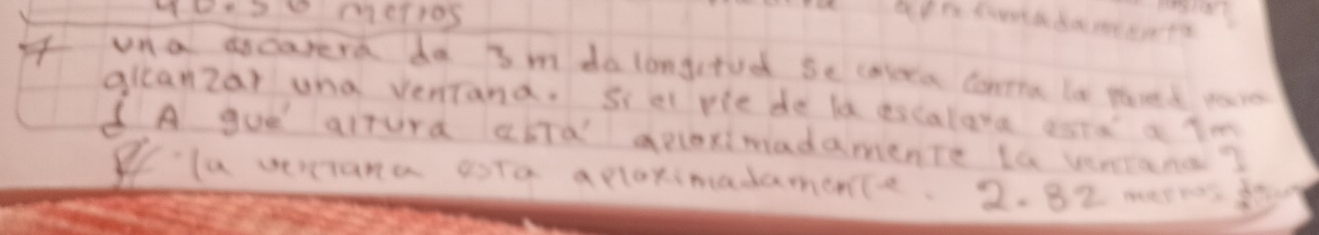 40.50 metros aproximadamente
7 una escavera de 3m de longitud se coloca contra la pared para
alcanzar una ventana. Si el pie de la escalera está a 1m
¿A qué altura está aploximadamente la ventana?
R// la ventana esta aploximadamente. 2.82 metros de